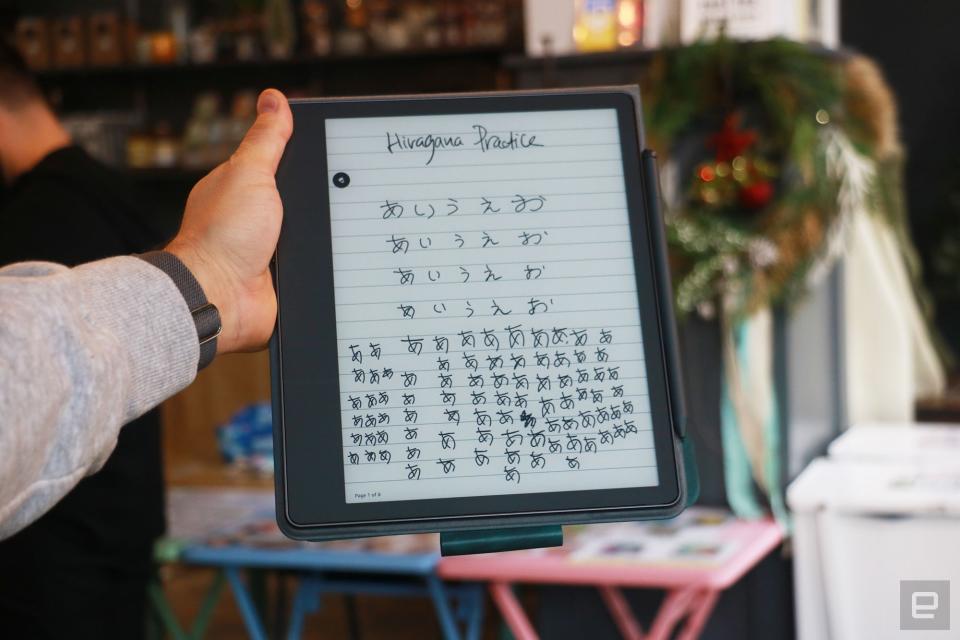 Hiragana Practice
あいうえお
あいうえお
あいうえお
あいうえお
ああ あ あ あああああああ
あああ あ あ ああああああああ
あああ あ あ ああああああああ
あああ あ あ ああああああああ
あああ あ あ ああ ああああああ
あああ あ あ ああああああああああ
あ あ ああああ
あ
Page 1 of 8